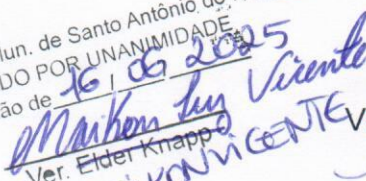 un. de Santo Antônio do
DO POR UNANIMIDADE
ão de 16 / 06 2025
Maikon Luiz Vicente
Ver. Elder Knapp
KON VICENTE V